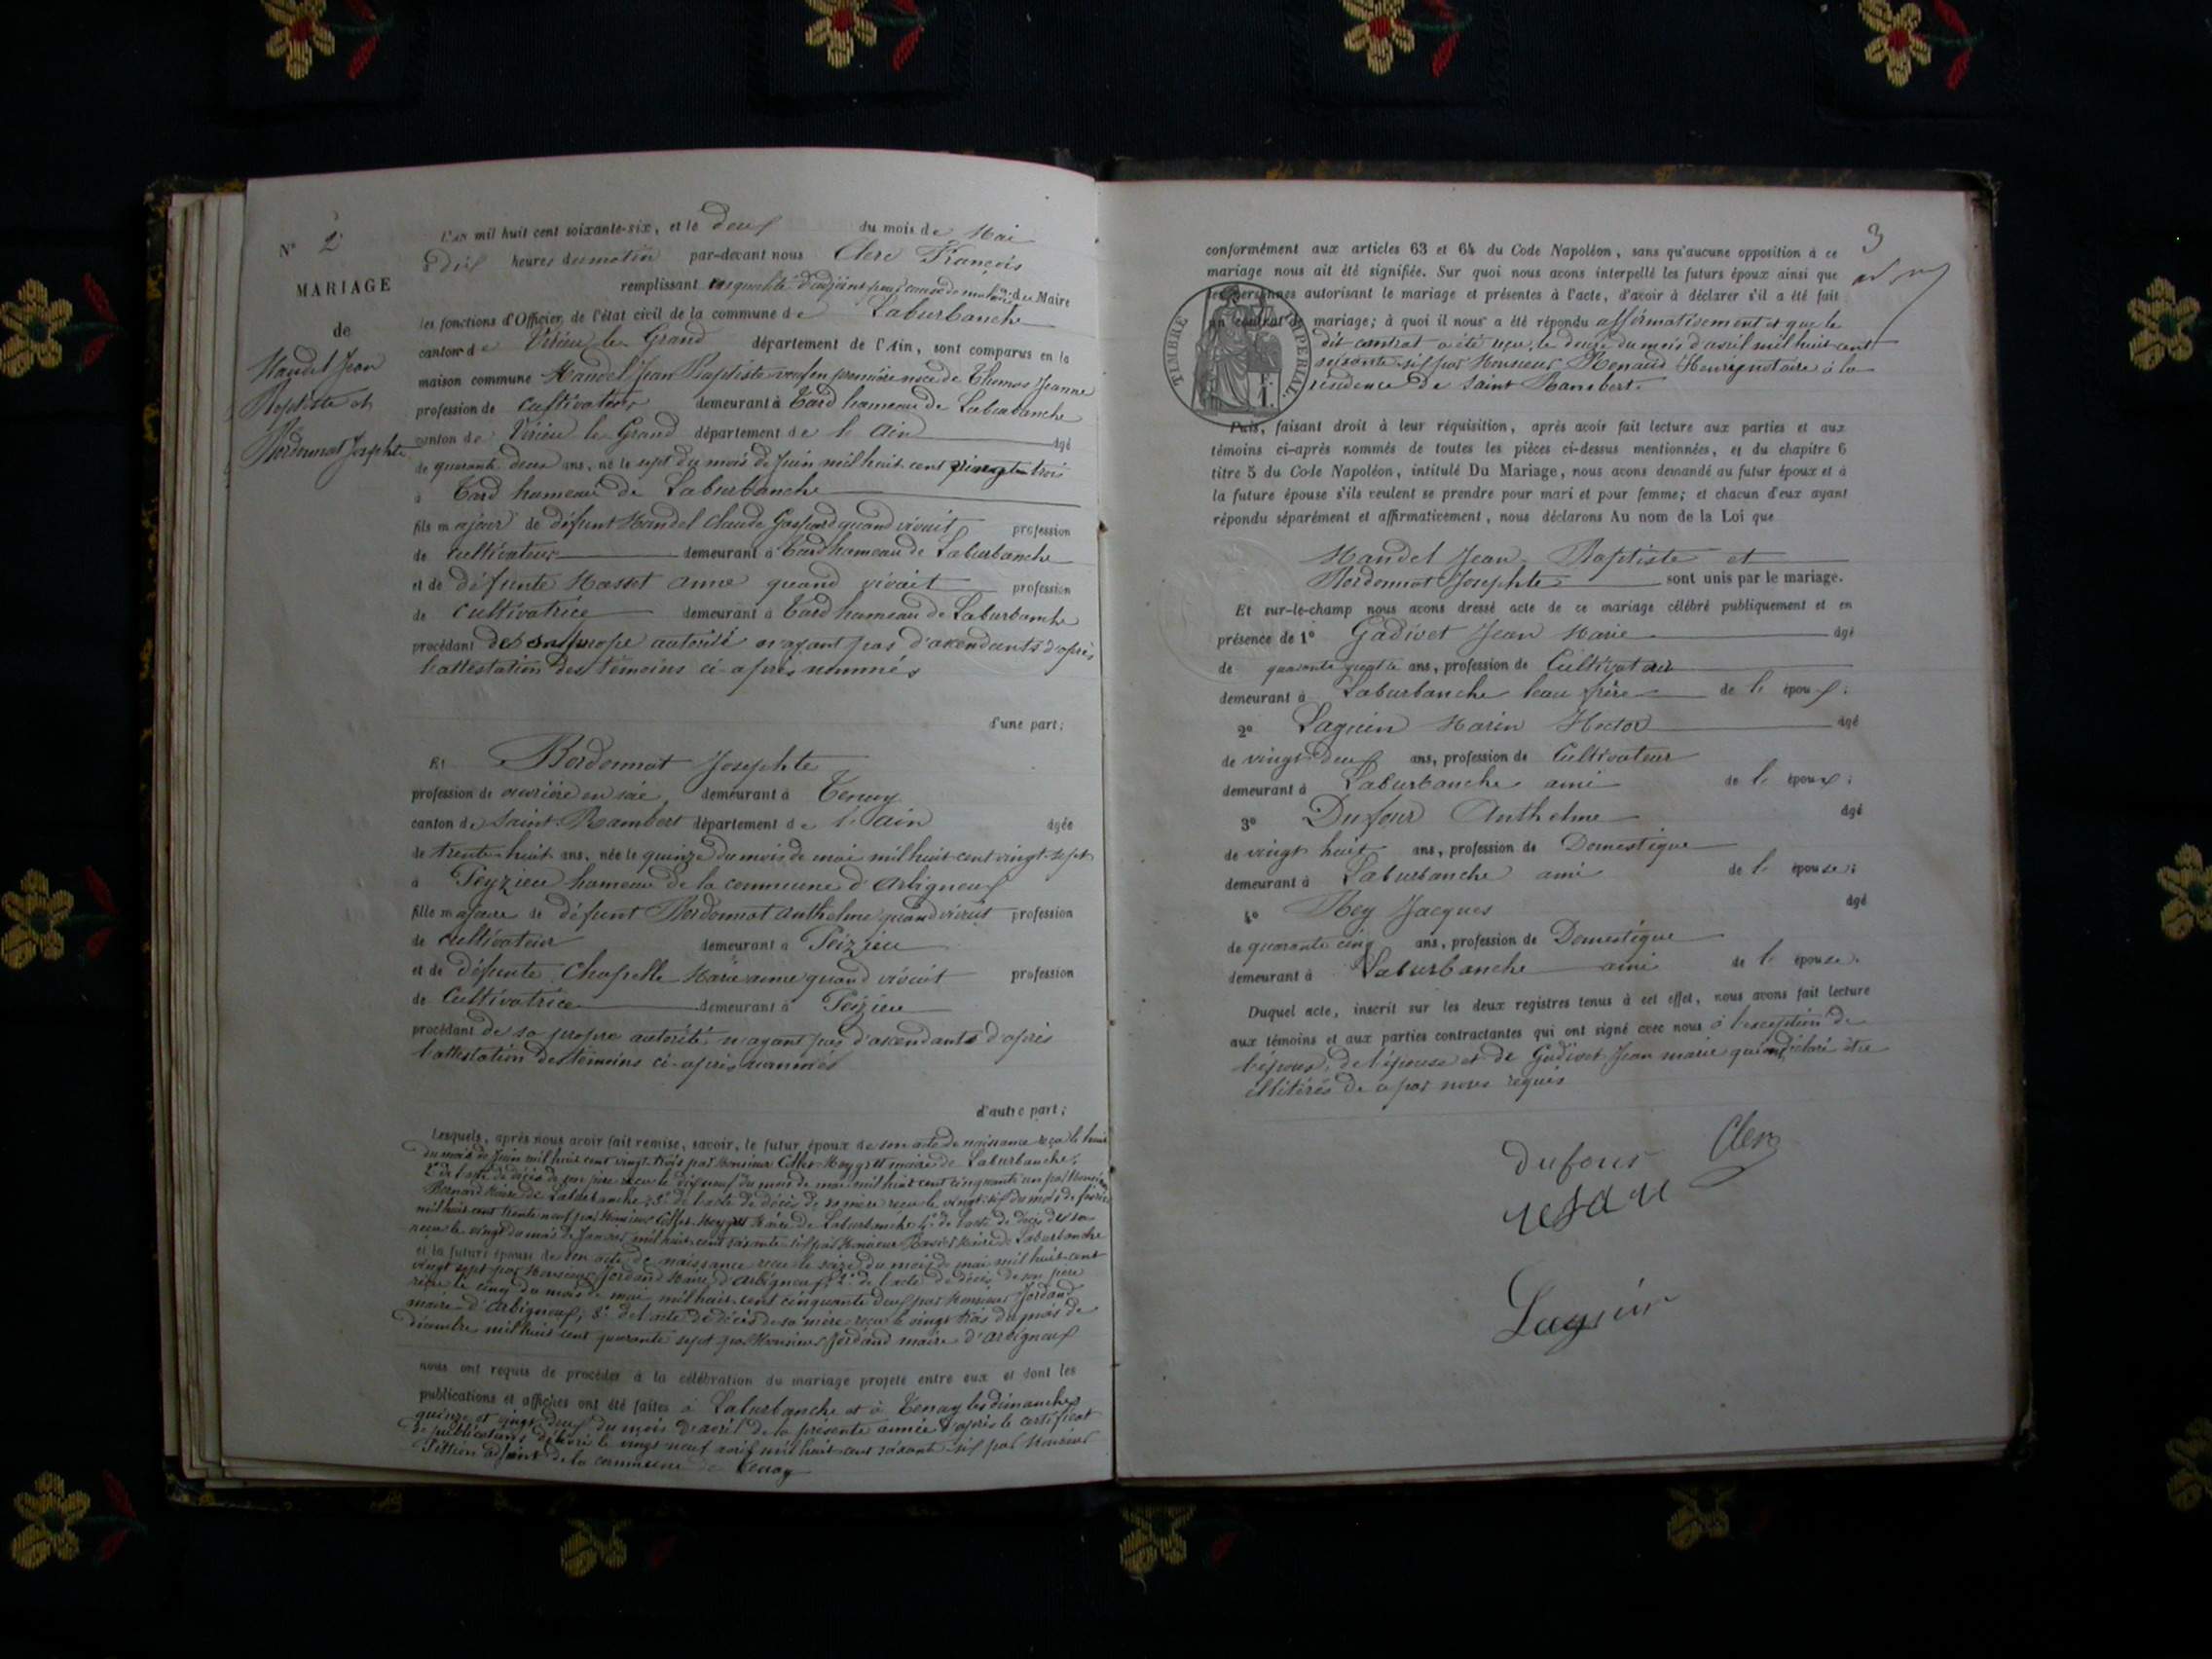 N° 2
MARIAGE
de
Mandel Jean
Baptiste et
Bordonnat Josephte
L'an mil huit cent soixante-six, et le deux du mois de Mai
à dix heures du matin par-devant nous Clerc François
remplissant en qualité d'adjoint pour cause de maladie du Maire
les fonctions d'Officier de l'état civil de la commune de Laburbanche
canton de Virieu le Grand département de l'Ain, sont comparus en la
maison commune Mandel Jean Baptiste veuf en première noce de Thomas Jeanne
profession de cultivateur demeurant à Tard hameau de Laburbanche
canton de Virieu le Grand département de l'Ain âgé
de quarante deux ans, né le sept du mois de Juin mil huit cent vingt trois
à Tard hameau de Laburbanche
fils majeur de défunt Mandel Claude Gaspard quand vivait profession
de cultivateur demeurant à Tard hameau de Laburbanche
et de défunte Masset Anne quand vivait profession
de cultivatrice demeurant à Tard hameau de Laburbanche
procédant de son propre autorité n'ayant pas d'ascendants d'après
l'attestation des témoins ci-après nommés
d'une part;
Et Bordonnat Josephte
profession de ouvrière en soie demeurant à Tenay
canton de Saint Rambert département de l'Ain âgée
de trente huit ans, née le quinze du mois de mai mil huit cent vingt sept
à Peyzieu hameau de la commune d'Arbigneux
fille majeure de défunt Bordonnat Anthelme quand vivait profession
de cultivateur demeurant à Peizieu
et de défunte Chapelle Marie anne quand vivait profession
de Cultivatrice demeurant à Peizieu
procédant de sa propre autorité n'ayant pas d'ascendants d'après
l'attestation des témoins ci-après nommés
d'autre part;
Lesquels, après nous avoir fait remise, savoir, le futur époux de son acte de naissance reçu le huit
du mois de Juin mil huit cent vingt trois par Monsieur maire de Laburbanche;
2° de l'acte de décès de son père reçu le dix neuf du mois de mai mil huit cent cinquante un par Monsieur
Bernard Maire de Laburbanche; 3° de l'acte de décès de sa mère reçu le vingt six du mois de février
mil huit cent trente neuf par Monsieur Maire de Laburbanche 4° de l'acte de décès de sa
reçu le vingt du mois de Janvier mil huit cent soixante six par Monsieur Maire de Laburbanche
et la future épouse de son acte de naissance reçu le seize du mois de mai mil huit cent
vingt sept par Monsieur Jordand Maire d'Arbigneux; 2° de l'acte de décès de son père
reçu le cinq du mois de mai mil huit cent cinquante deux par Monsieur Jordand
maire d'Arbigneux; 3° de l'acte de décès de sa mère reçu le vingt trois du mois de
décembre mil huit cent quarante sept par Monsieur Jordand maire d'Arbigneux
nous ont requis de procéder à la célébration du mariage projeté entre eux et dont les
publications et affiches ont été faites à Laburbanche et à Tenay les dimanches
quinze et vingt deux du mois de avril de la présente année d'après le certificat
de publications délivré le vingt neuf avril mil huit cent soixante six par Monsieur
adjoint de la commune de Tenay
3
conformément aux articles 63 et 64 du Code Napoléon, sans qu'aucune opposition à ce
mariage nous ait été signifiée. Sur quoi nous avons interpellé les futurs époux ainsi que
les personnes autorisant le mariage et présentes à l'acte, d'avoir à déclarer s'il a été fait
un contrat de mariage; à quoi il nous a été répondu affirmativement et que le
dit contrat a été reçu le douze du mois d'avril mil huit cent
soixante six par Monsieur Renaud Henri notaire à la
résidence de Saint Rambert.
TIMBRE IMPERIAL
Puis, faisant droit à leur réquisition, après avoir fait lecture aux parties et aux
témoins ci-après nommés de toutes les pièces ci-dessus mentionnées, et du chapitre 6
titre 5 du Code Napoléon, intitulé Du Mariage, nous avons demandé au futur époux et à
la future épouse s'ils veulent se prendre pour mari et pour femme; et chacun d'eux ayant
répondu séparément et affirmativement, nous déclarons Au nom de la Loi que
Mandel Jean-Baptiste et
Bordonnat Josephte sont unis par le mariage.
Et sur-le-champ nous avons dressé acte de ce mariage célébré publiquement et en
présence de 1° Gadivet Jean Marie âgé
de quarante quatre ans, profession de Cultivateur
demeurant à Laburbanche beau frère de l'époux;
2° Laguin Marin Hector âgé
de vingt deux ans, profession de Cultivateur
demeurant à Laburbanche ami de l'époux;
3° Dufour Anthelme âgé
de vingt huit ans, profession de Domestique
demeurant à Laburbanche ami de l'épouse;
4° Rey Jacques âgé
de quarante cinq ans, profession de Domestique
demeurant à Laburbanche ami de l'épouse.
Duquel acte, inscrit sur les deux registres tenus à cet effet, nous avons fait lecture
aux témoins et aux parties contractantes qui ont signé avec nous à l'exception de
l'époux, de l'épouse et de Gadivet Jean marie qui ont déclaré être
illitérés de ce par nous requis
Dufour Clerc
Laguin